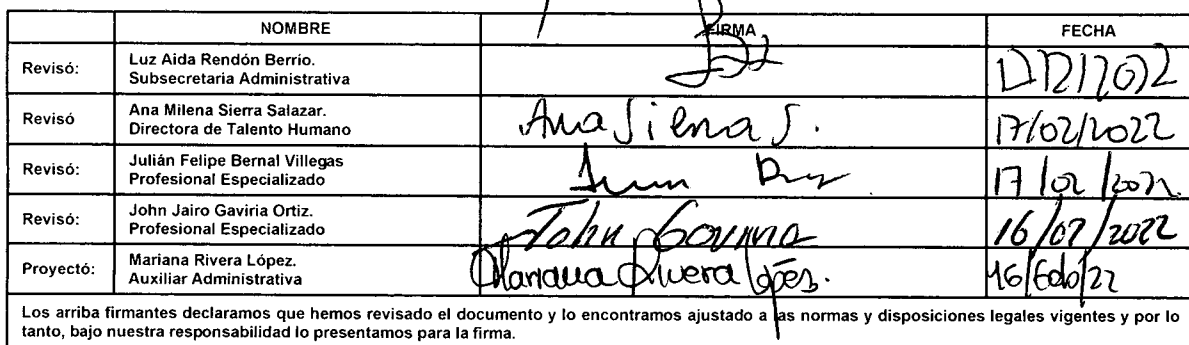 NOMBRE FIRMA FECHA
Revisó: Luz Aida Rendón Berrio.
Subsecretaria Administrativa
Revisó Ana Milena Sierra Salazar.
Directora de Talento Humano
Ana Sierra S. 17/02/2022
Revisó: Julián Felipe Bernal Villegas
Profesional Especializado
17/02/
Revisó: John Jairo Gaviria Ortiz.
Profesional Especializado
John Gaviria 16/02/2022
Proyectó: Mariana Rivera López.
Auxiliar Administrativa
Mariana Rivera López. 16/Feb/22
Los arriba firmantes declaramos que hemos revisado el documento y lo encontramos ajustado a las normas y disposiciones legales vigentes y por lo
tanto, bajo nuestra responsabilidad lo presentamos para la firma.